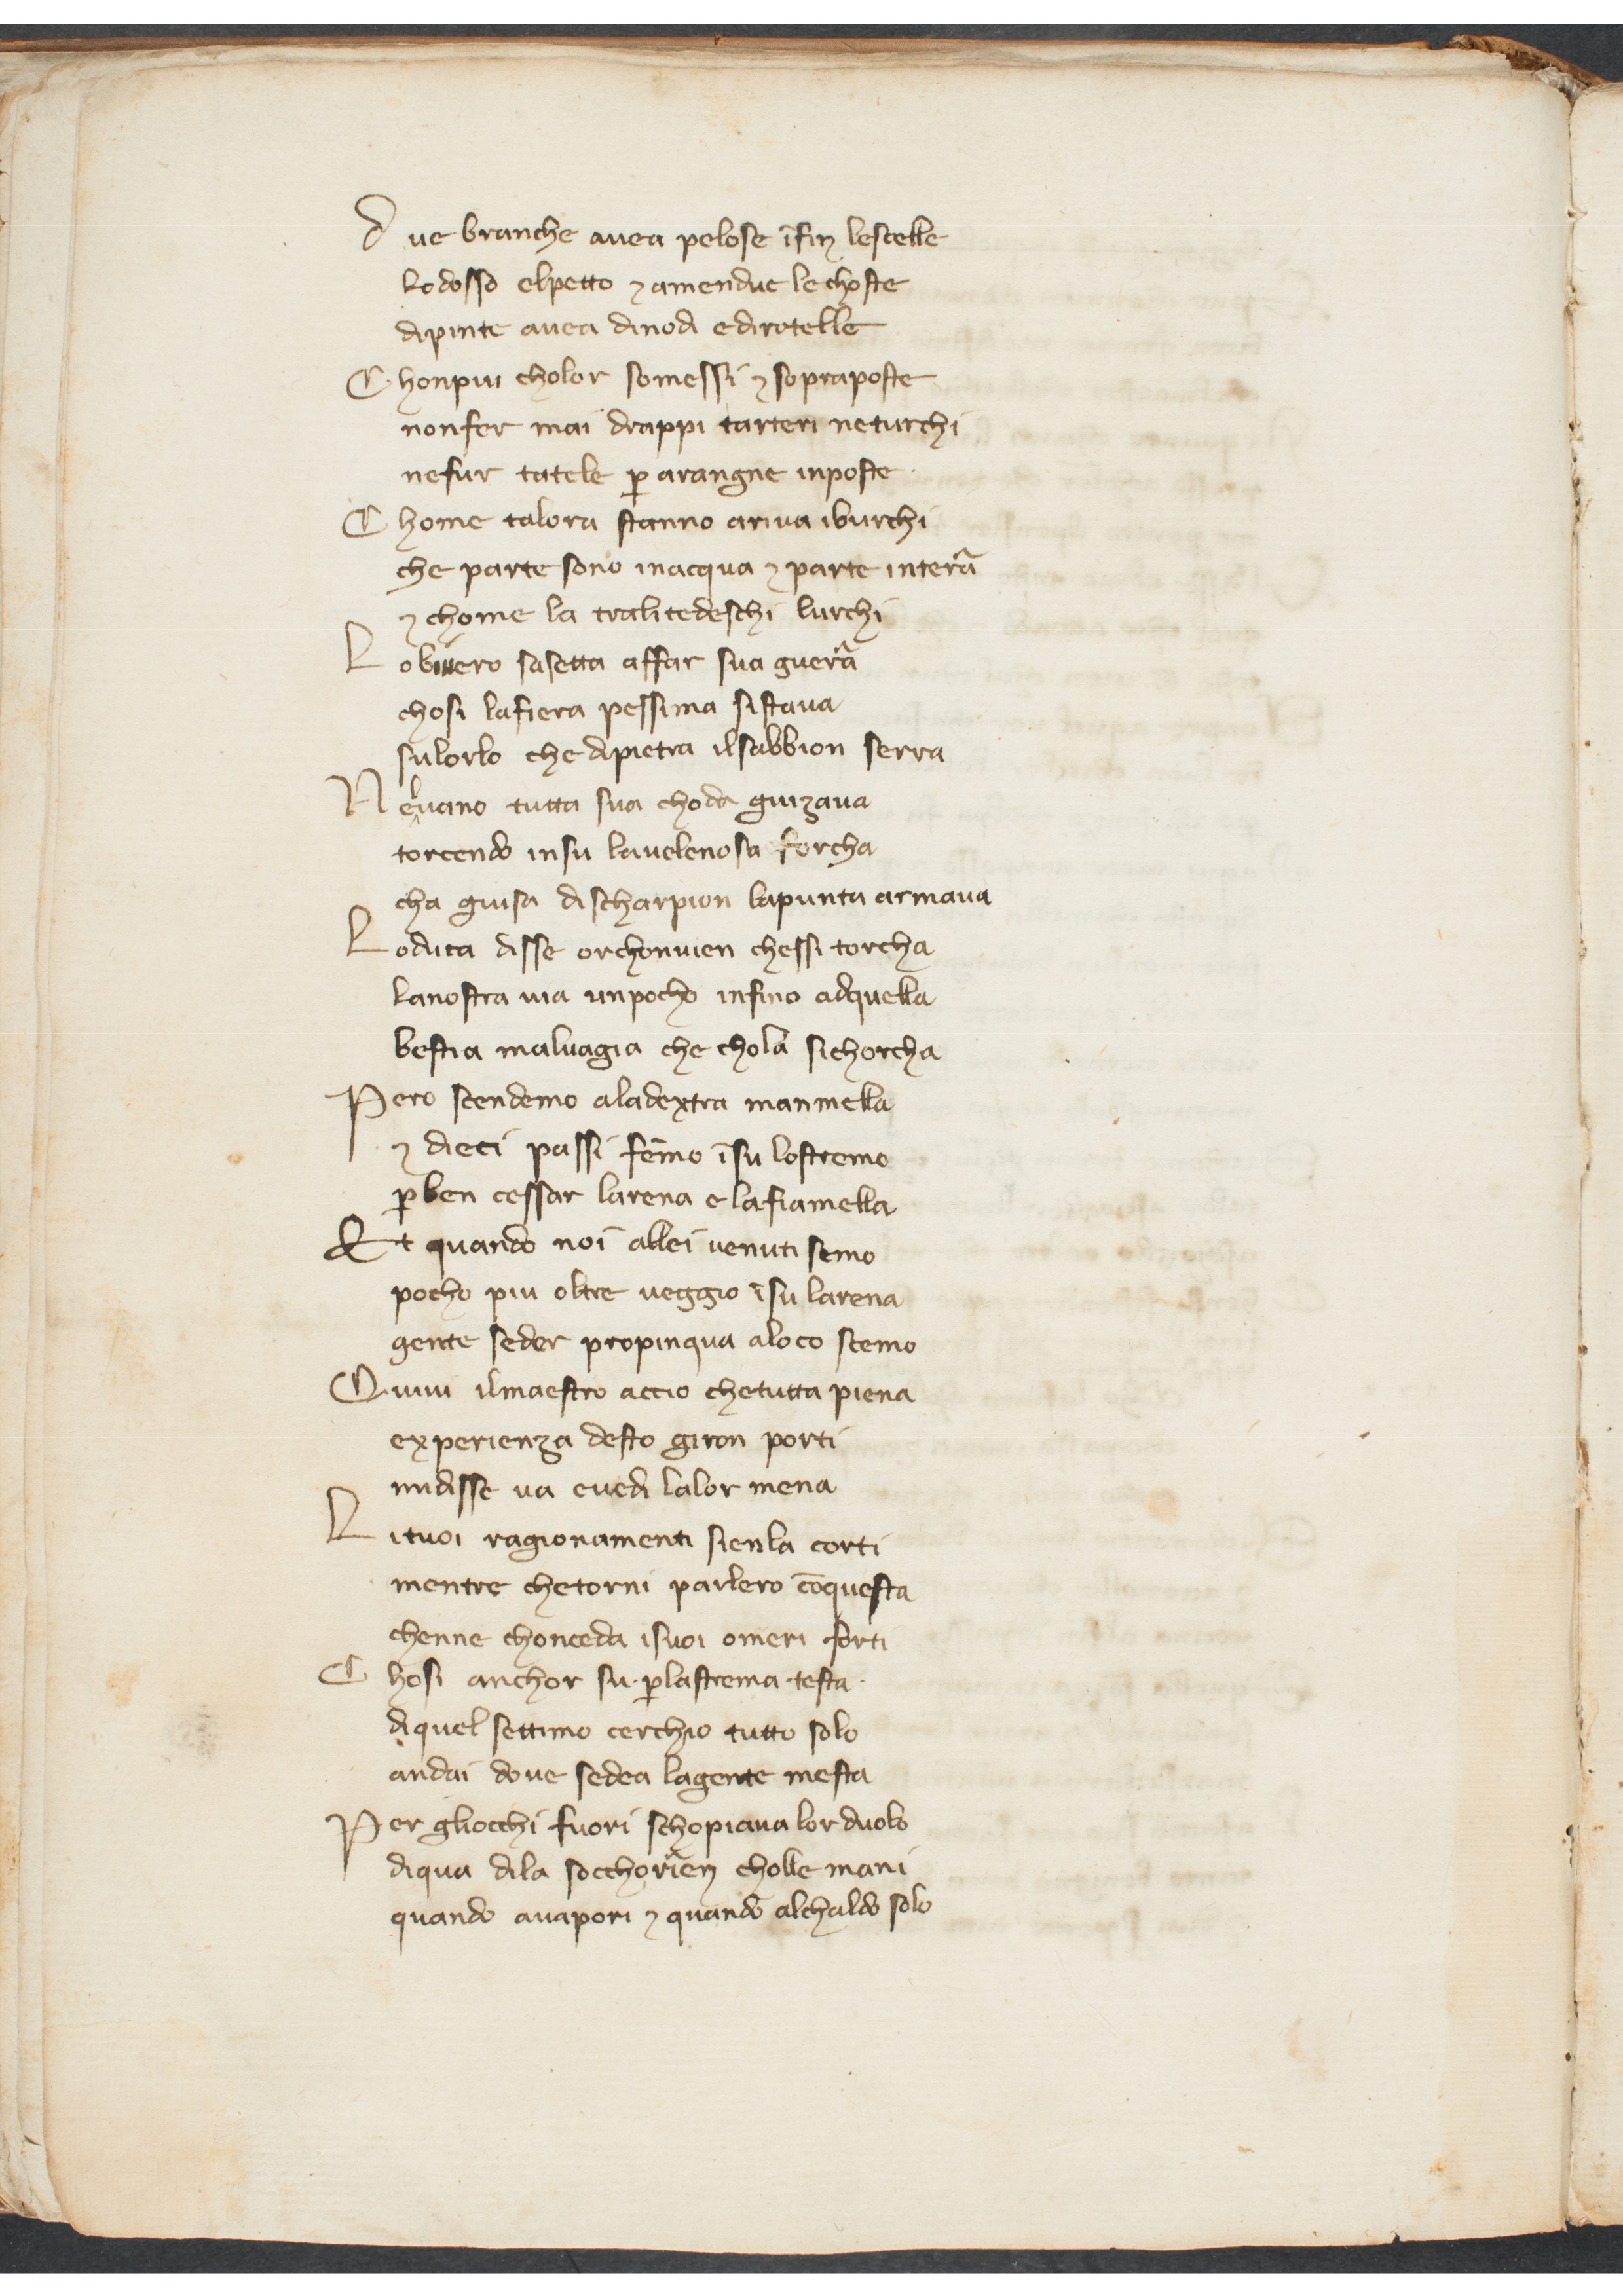 Due branche avea pelose ĩfin lescelle
Lodosso elpetto ⁊ amendue le choste
dipinte avea dinodi edirotelle
Chonpiu cholor somessi ⁊ sopraposte
nonfer mai drappi tarteri neturchi
nefur tatele ꝑ arangne inposte
Chome talora stanno ariva iburchi
che parte sono inacqua ⁊ parte interã
⁊ chome la tralitedeschi lurchi
Lobivero sasetta affar sua guerã
chosi lafiera pessima sistava
sulorlo che dipietra ilsabbion serra
Nelvano tutta sua choda guizava
torcendo insu lavelenosa forcha
cha guisa discharpion lapunta armava
Loduca disse orchonvien chessi torcha
lanostra via unpocho infino adquella
bestia malvagia che chola sichorcha
Pero scendemo aladextra manmella
⁊ dieci passi fẽmo ĩsu lostremo
ꝑ ben cessar larena e lafiamella
Et quando noi allei venuti semo
pocho piu oltre veggio ĩsu larena
gente seder propinqua aloco scemo
Quivi ilmaestro accio chetutta piena
experienza desto giron porti
midisse va evedi lalor mena
Lituoi ragionamenti sienla corti
mentre chetorni parlero cõquesta
chenne chonceda isuoi omeri forti
Chosi anchor su · ꝑlastrema · testa ·
diquel settimo cerchio tutto solo
andai dove sedea lagente mesta
Per gliocchi fuori schopiava lor duolo
diqua dila socchorĩen cholle mani
quando avapori ⁊ quando alchaldo solo